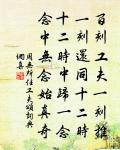 百刻工夫一刻推
一刻還同十二時
十二時中歸一念
念中無念始真奇
周無所住工夫頌詞典
網喜